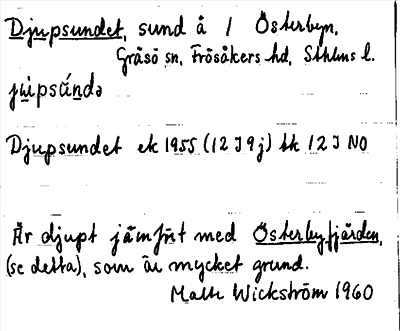 Djupsundet, sund å 1 Österbyn,
Gräsö sn, Frösåkers hd, Sthlms l.
jùpsúndə
Djupsundet ek 1955 (12 I 9 j) tk 12 I NO
Är djupt jämfrt med Österbyfjärden,
(se detta), som är mycket grund.
Wickström 1960